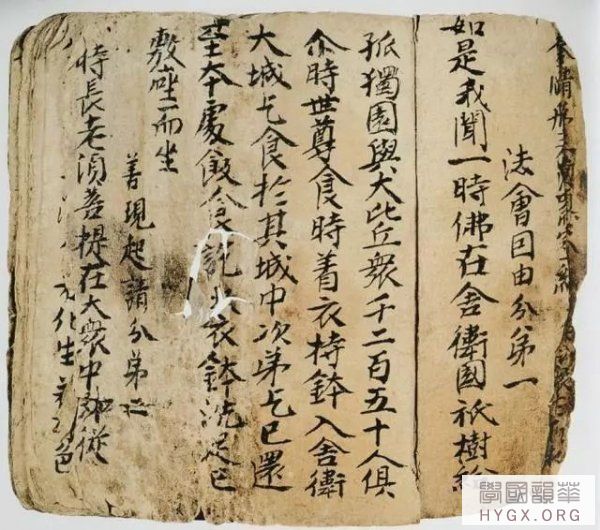 奉請
法會囙由分第一
如是我聞一時佛在舍衛國祇樹給
孤獨園與大比丘衆千二百五十人俱
尒時世尊食時着衣持鉢入舍衛
大城乞食於其城中次第乞已還
至本處飯食訖收衣鉢洗足已
敷座而坐
善現起請分第二
時長老須菩提在大衆中即從
化生 色
學國韻華
HYGX.ORG